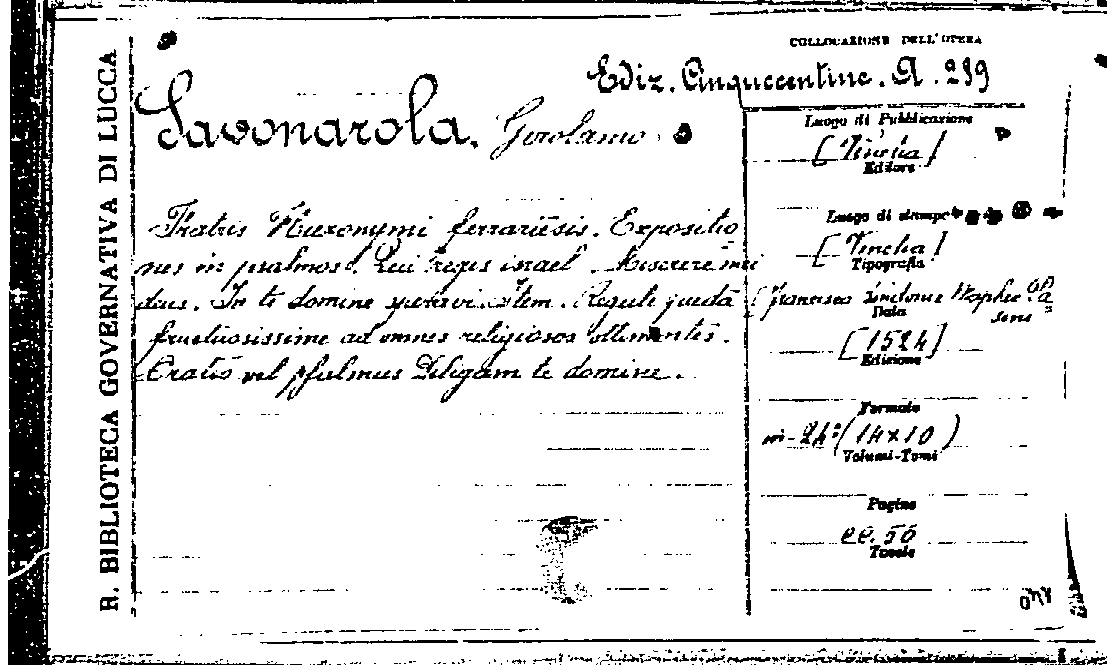 R. BIBLIOTECA GOVERNATIVA DI LUCCA
COLLOCAZIONE DELL'OPERA
Ediz. Cinquecentine. A. 239
Savonarola, Girolamo
Fratris Hieronymi ferrariēsis. Expositio
nes in psalmos. Qui regis israel. Miserere mei
deus. In te domine speravi. Itēm. Regule quedā
fructuosissime ad omnes religiosos attinentēs.
Oratio vel psalmus Diligam te domine.
Luogo di Pubblicazione
[Vinetia]
Editore
Luogo di stampa
[Vinetia]
Tipografia
[Francisco Bindonis Mapheo Pa
sini
Data
[1524]
Edizione
Formato
in-24° (14x10)
Volumi-Tomi
Pagine
cc. 56
Tavole